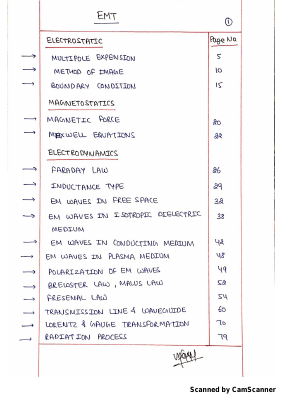 EMT
1
ELECTROSTATIC Page No
→ MULTIPOLE EXPENSION 5
→ METHOD OF IMAGE 10
→ BOUNDARY CONDITION 15
MAGNETOSTATICS
→ MAGNETIC FORCE 20
→ MAXWELL EQUATIONS 22
ELECTRODYNAMICS
→ FARADAY LAW 26
→ INDUCTANCE TYPE 29
→ EM WAVES IN FREE SPACE 32
→ EM WAVES IN ISOTROPIC DIELECTRIC 38
MEDIUM
→ EM WAVES IN CONDUCTING MEDIUM 42
→ EM WAVES IN PLASMA MEDIUM 48
→ POLARIZATION OF EM WAVES 49
→ BREWSTER LAW, MALUS LAW 52
→ FRESENAL LAW 54
→ TRANSMISSION LINE & WAVEGUIDE 60
→ LORENTZ & GAUGE TRANSFORMATION 70
→ RADIATION PROCESS 79
Scanned by CamScanner